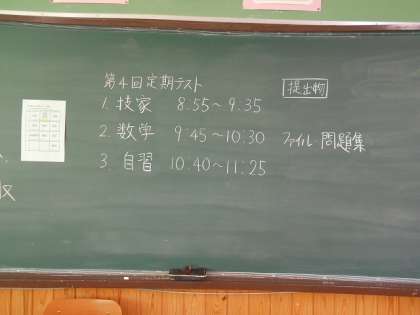 第4回定期テスト
提出物
1. 技家 8.55～9.35
2. 数学 9:45～10:30 ファイル・問題集
3. 自習 10:40～11:25